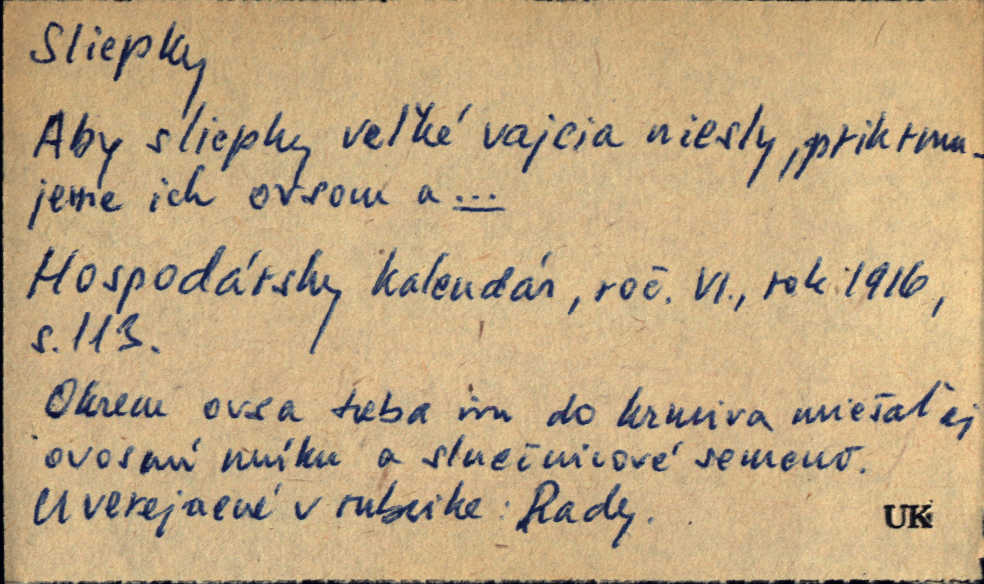 Sliepky
Aby sliepky veľké vajcia niesly, prikrmu-
jeme ich ovsom a ...
Hospodársky kalendár, roč. VI., rok 1916,
s. 113.
Okrem ovsa treba im do krmiva miešať aj
ovosnú múku a slnečnicové semeno.
Uverejnené v rubrike: Rady.
UK